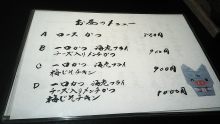 お昼のメニュー
A ロースかつ 850円
B 一口かつ 海老フライ
チーズ入りメンチかつ 900円
C 一口かつ 海老フライ
梅じそチキン 900円
D 一口かつ 海老フライ
チーズ入りメンチかつ
梅じそチキン 1000円